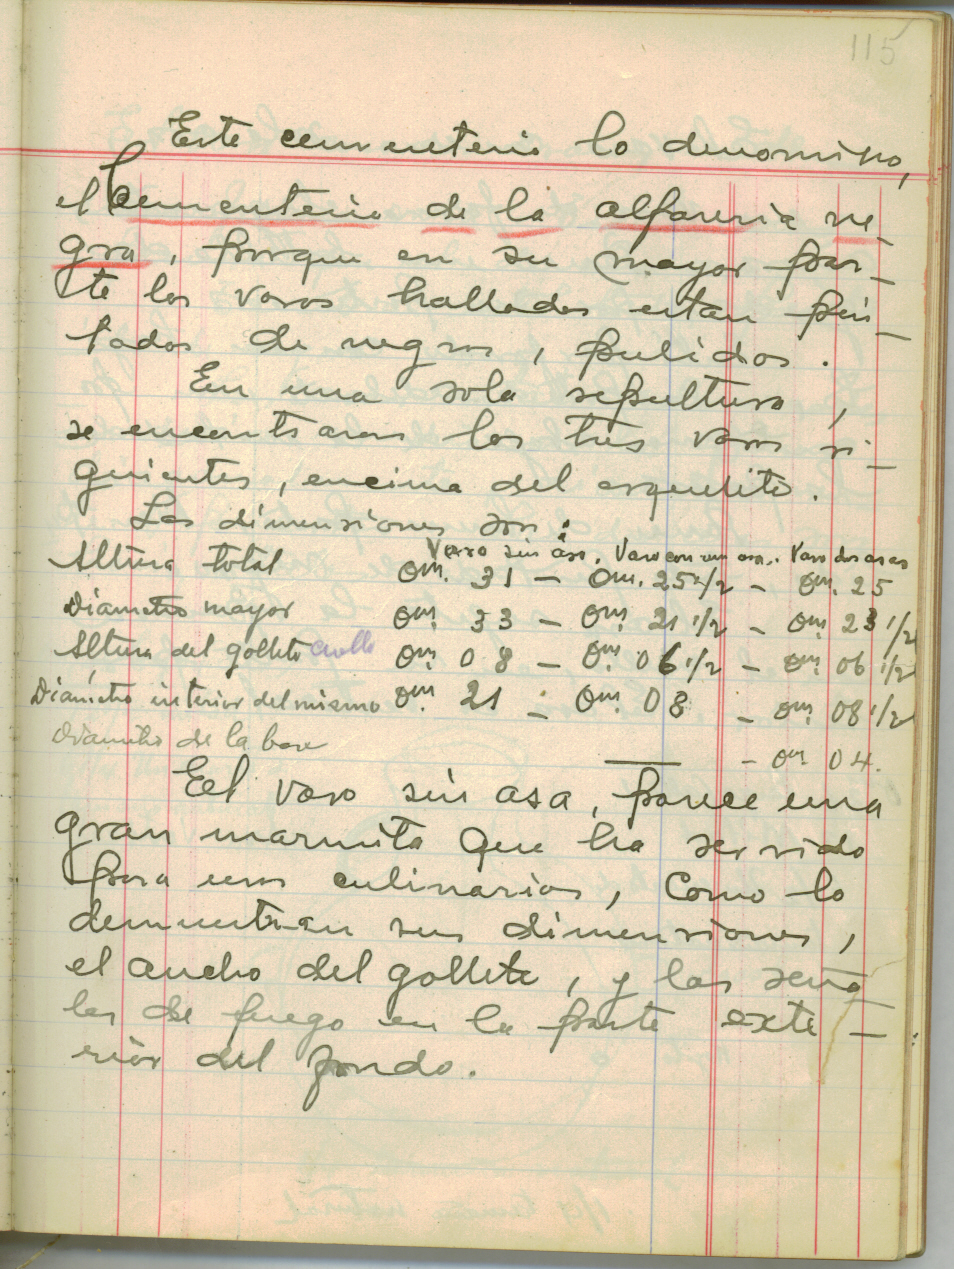 115
Este cementerio lo denomino,
el Cementerio de la alfareria ne-
gra, porque en su mayor par-
te los vasos hallados estan pin-
tados de negros, pulidos.
En una sola sepultura,
se encontraron los tres vasos si-
guientes, encima del esqueleto.
Las dimensiones son:
Vaso sin asa. Vaso con un asa. Vaso dos asas
Altura total 0m. 31 - 0m. 25 1/2 - 0m. 25
Diametro mayor 0m. 33 - 0m. 21 1/2 - 0m. 23 1/2
Altura del gollete cuello 0m. 08 - 0m. 06 1/2 - 0m. 06 1/2
Diámetro interior del mismo 0m. 21 - 0m. 08 - 0m. 08 1/2
Diametro de la base — - 0m. 04.
Eel vaso sin asa, parece una
gran marmita que ha servido
para usos culinarios, como lo
demuestran sus dimensiones,
el ancho del gollete, y las seña
les de fuego en la parte exte-
rior del fondo.